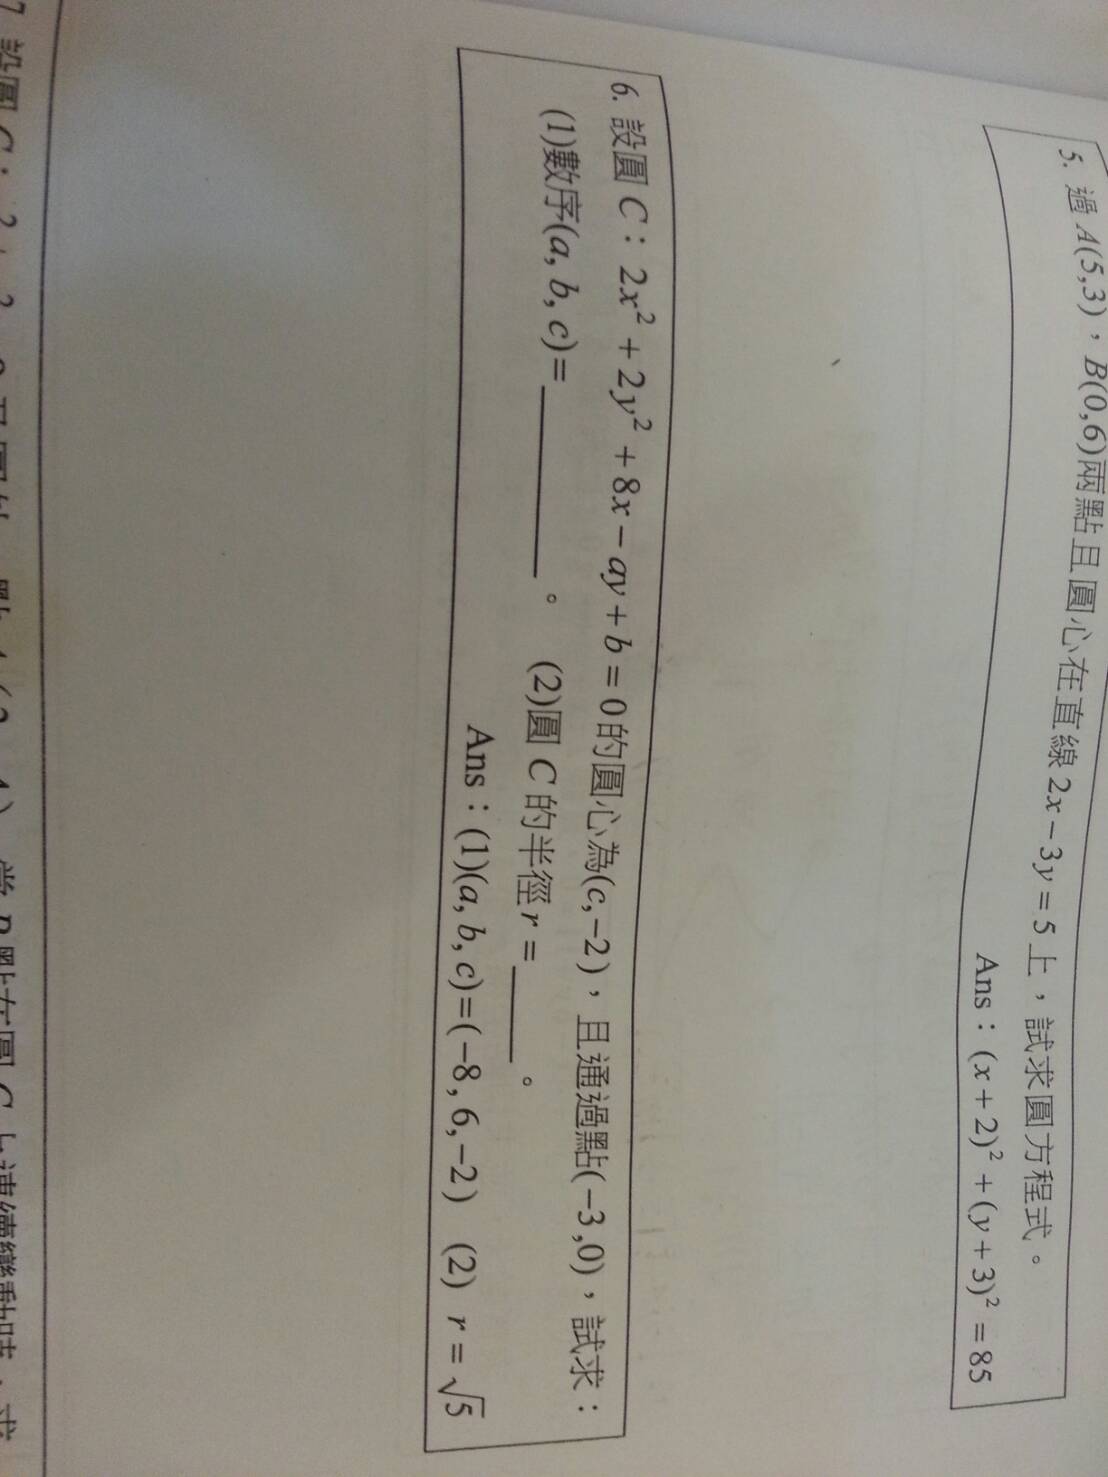 5. 過 A(5,3)，B(0,6)兩點且圓心在直線 2x－3y＝5 上，試求圓方程式。
Ans：(x＋2)²＋(y＋3)²＝85
6. 設圓 C：2x²＋2y²＋8x－ay＋b＝0的圓心為(c,－2)，且通過點(－3,0)，試求：
(1)數序(a, b, c)=＿＿＿＿＿。 (2)圓 C 的半徑 r＝＿＿＿。
Ans：(1)(a, b, c)=(－8, 6,－2) (2) r＝√5
7. 設圓 C：